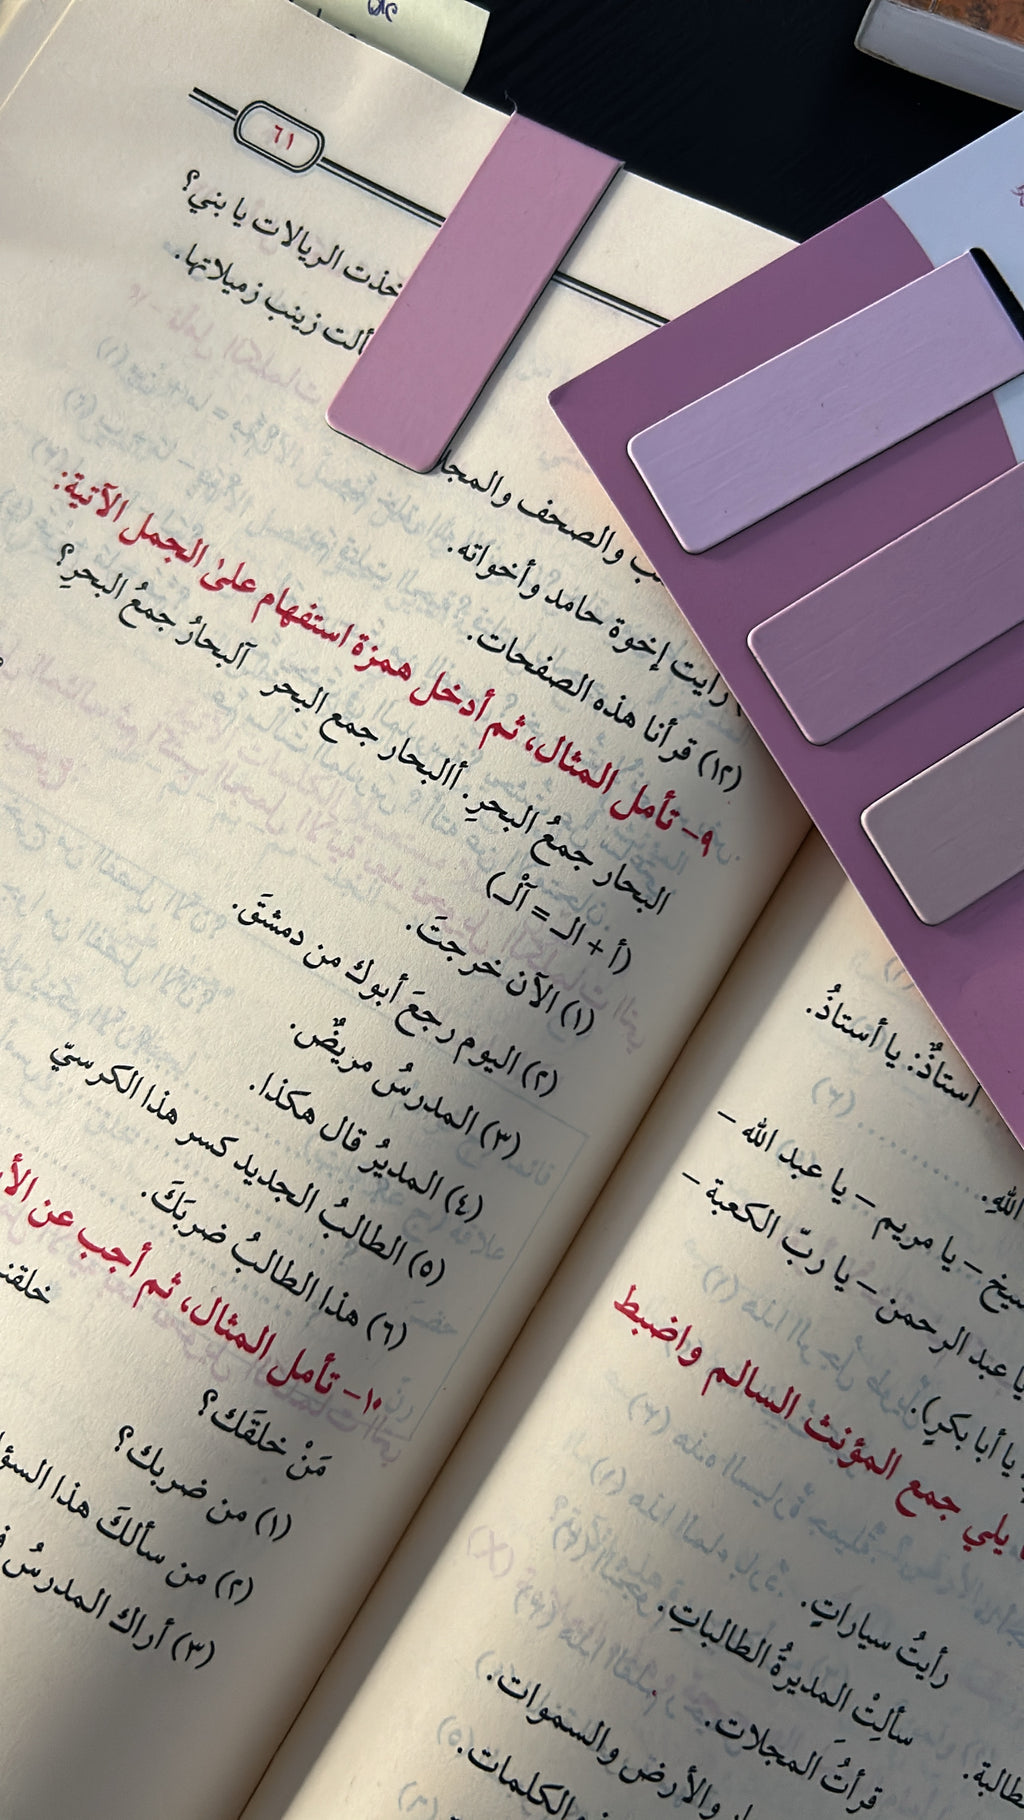 ٦١
خذت الريالات يا بني؟
ألت زينب زميلاتها.
والصحف والمجا
رأيت إخوة حامد وأخواته.
(١٢) قرأنا هذه الصفحات.
٩- تأمل المثال، ثم أدخل همزة استفهام على الجمل الآتية:
البحار جمعُ البحرِ. أالبحار جمع البحر آلبحارُ جمعُ البحرِ؟
(أ + الـ = آلْـ)
(١) الآن خرجتَ.
(٢) اليوم رجعَ أبوك من دمشقَ.
(٣) المدرسُ مريضٌ.
(٤) المديرُ قال هكذا.
(٥) الطالبُ الجديد كسر هذا الكرسيّ
(٦) هذا الطالبُ ضربَكَ.
١٠- تأمل المثال، ثم أجب عن الأ
مَنْ خلقَك؟ خلقنـ
(١) من ضربك؟
(٢) من سألكَ هذا السؤ
(٣) أراك المدرسُ
أستاذٌ: يا أستاذُ.
اللهِ.
يا مريم – يا عبد الله –
يا عبد الرحمن – يا ربّ الكعبة –
يا أبا بكرٍ).
يلي جمع المؤنث السالم واضبط
رأيتُ سياراتٍ.
سألتِْ المديرةُ الطالباتِ.
قرأتُ المجلات.
والأرض والسموات.
الكلمات.